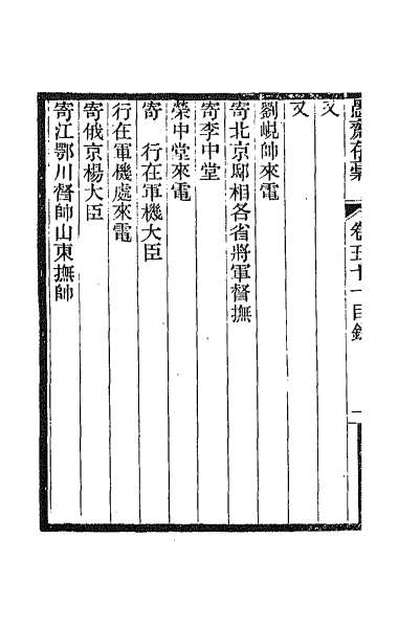 愚齋存稾 卷五十一目錄 一
又
又
劉峴帥來電
寄北京邸相各省將軍督撫
寄李中堂
榮中堂來電
寄 行在軍機大臣
行在軍機處來電
寄俄京楊大臣
寄江鄂川督帥山東撫帥